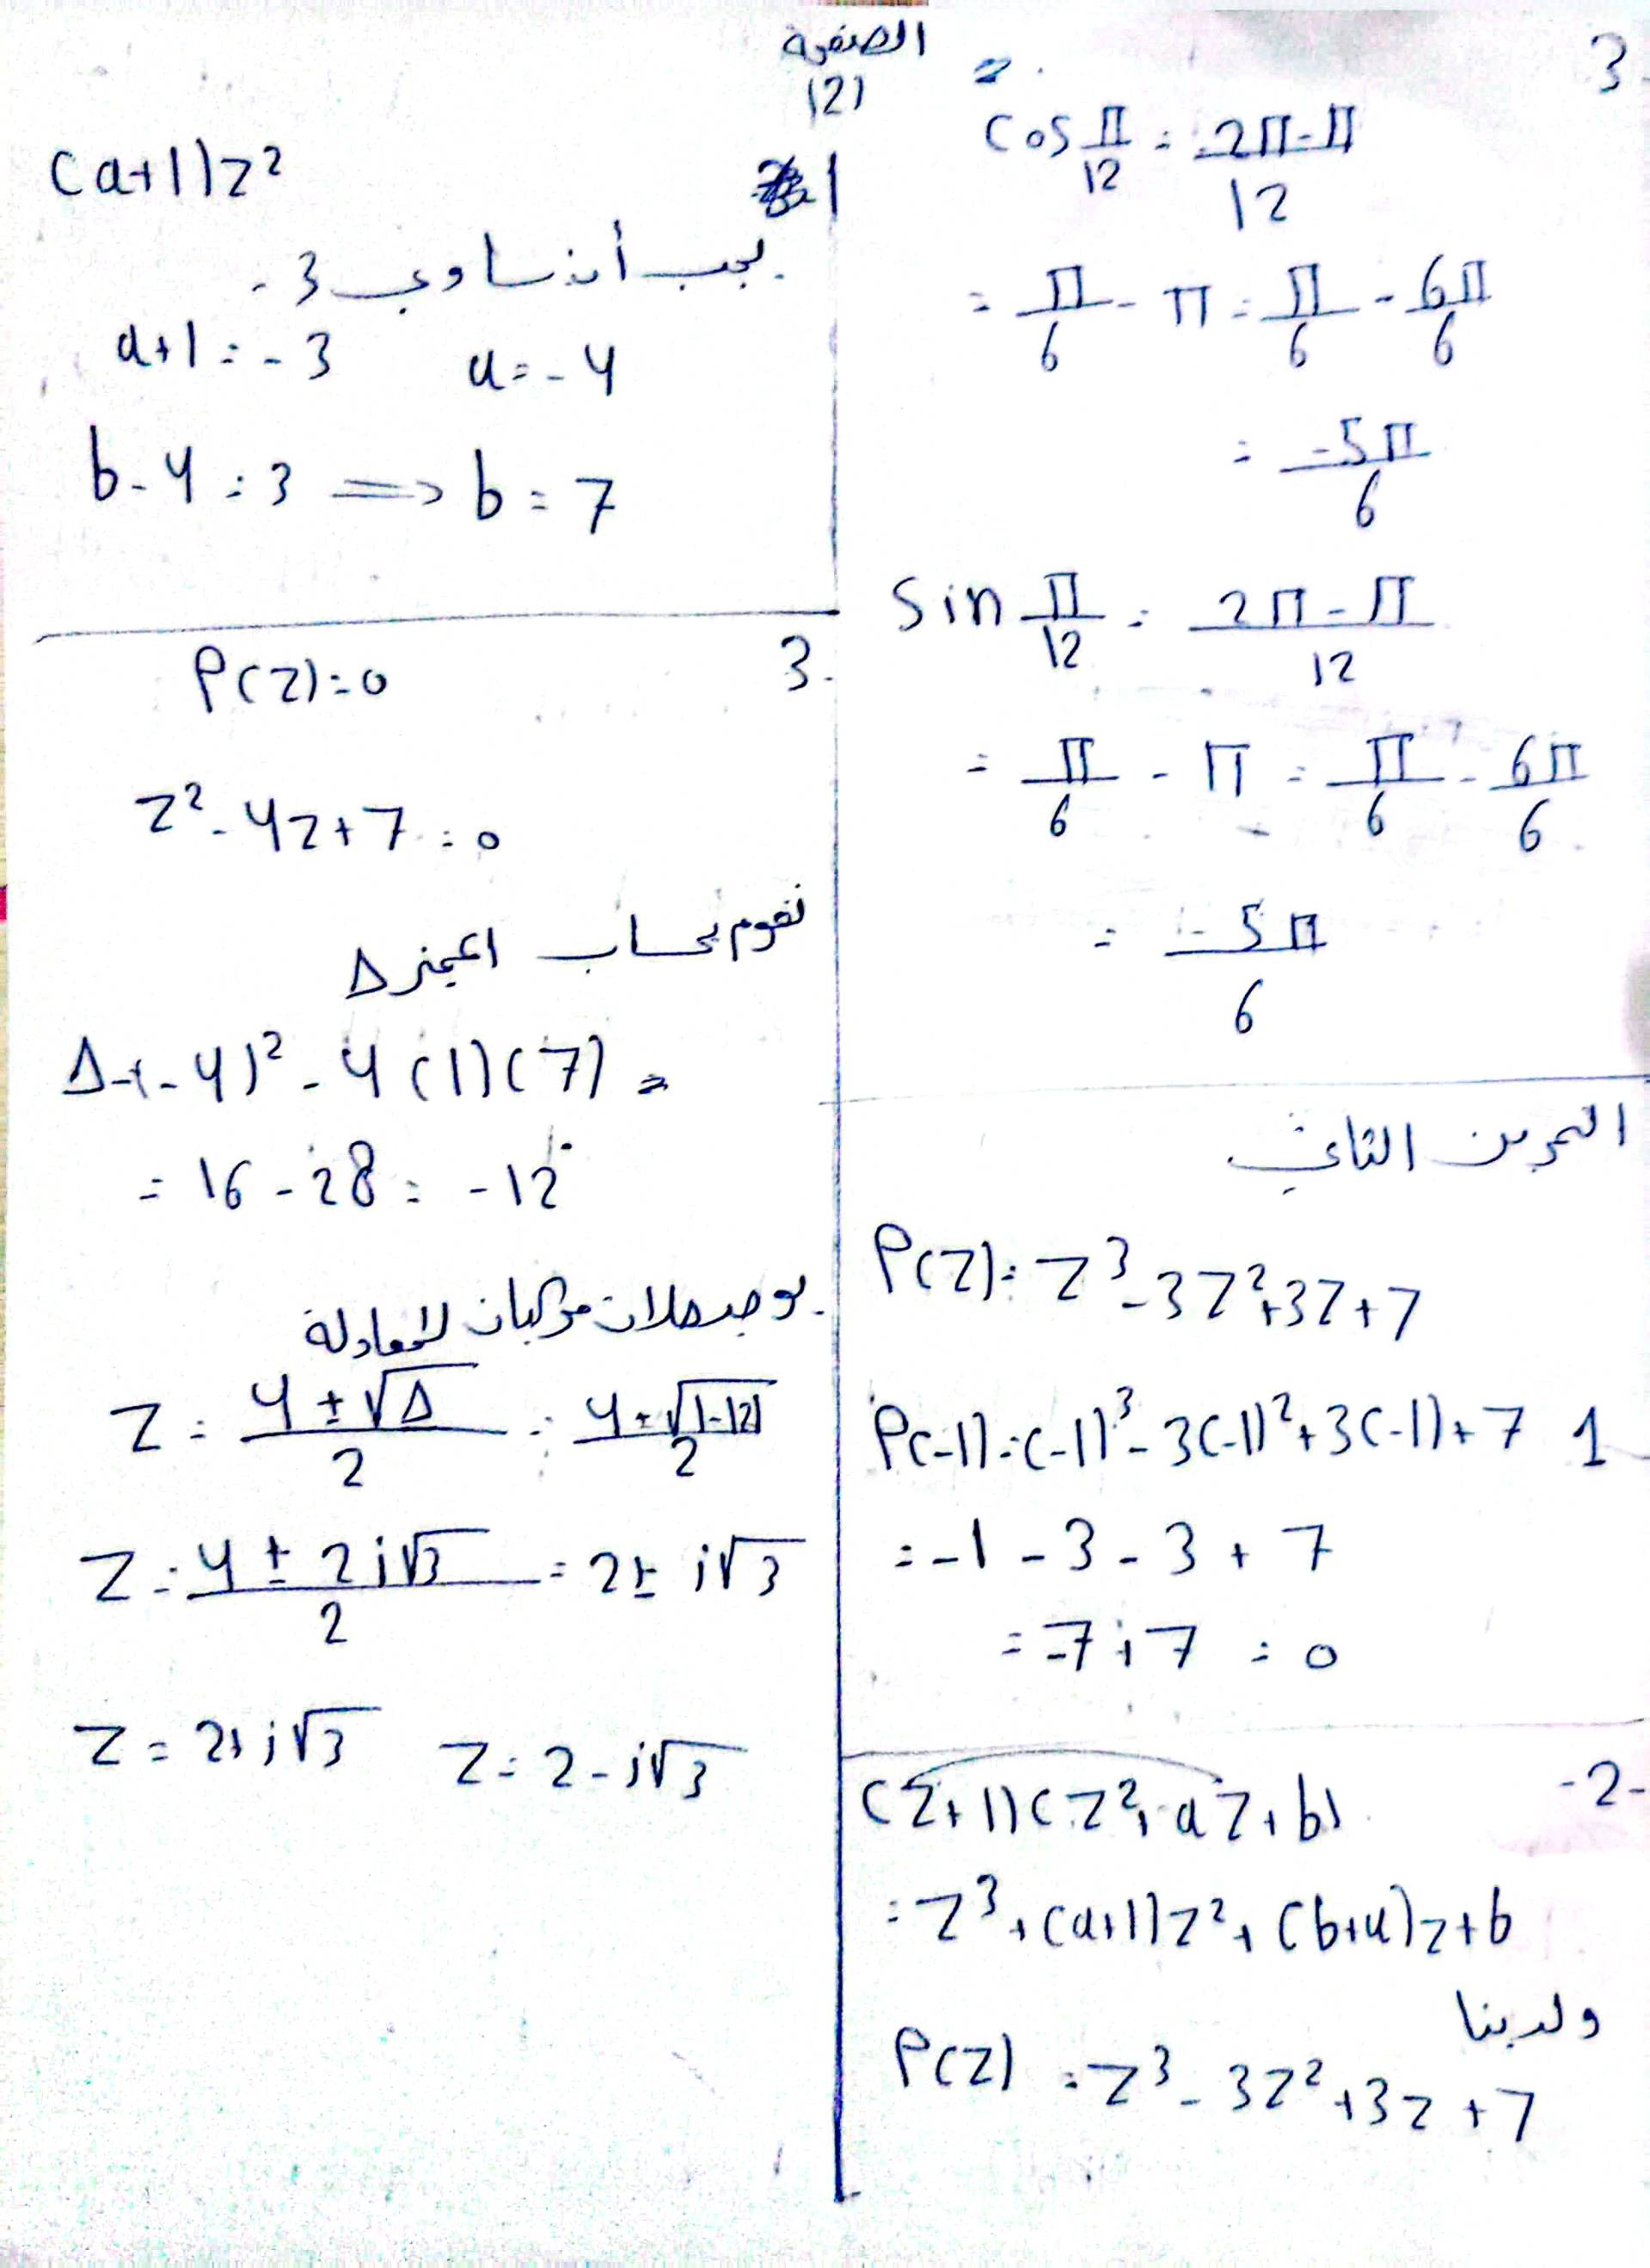 الصفحة
(2)
3.
cos π/12 = 2π-π/12
= π/6 - π = π/6 - 6π/6
= -5π/6
sin π/12 = 2π-π/12
= π/6 - π = π/6 - 6π/6
= -5π/6
التمرين الثاني
P(Z) = Z³ - 3Z² + 3Z + 7
P(-1) = (-1)³ - 3(-1)² + 3(-1) + 7 1
= -1 - 3 - 3 + 7
= -7 + 7 = 0
(Z+1)(Z² + aZ + b) -2-
= Z³ + (a+1)Z² + (b+a)Z + b
ولدينا
P(Z) = Z³ - 3Z² + 3Z + 7
(a+1)Z² 1
يجب أن تساوي 3-
a+1 = -3 a = -4
b-4 = 3 => b = 7
P(Z) = 0 3.
Z² - 4Z + 7 = 0
نقوم بحساب المميز Δ
Δ = (-4)² - 4(1)(7) =
= 16 - 28 = -12
يوجد حلان مركبان للمعادلة
Z = 4±√Δ/2 = 4±√|-12|/2
Z = 4±2i√3/2 = 2± i√3
Z = 2+i√3 Z = 2-i√3